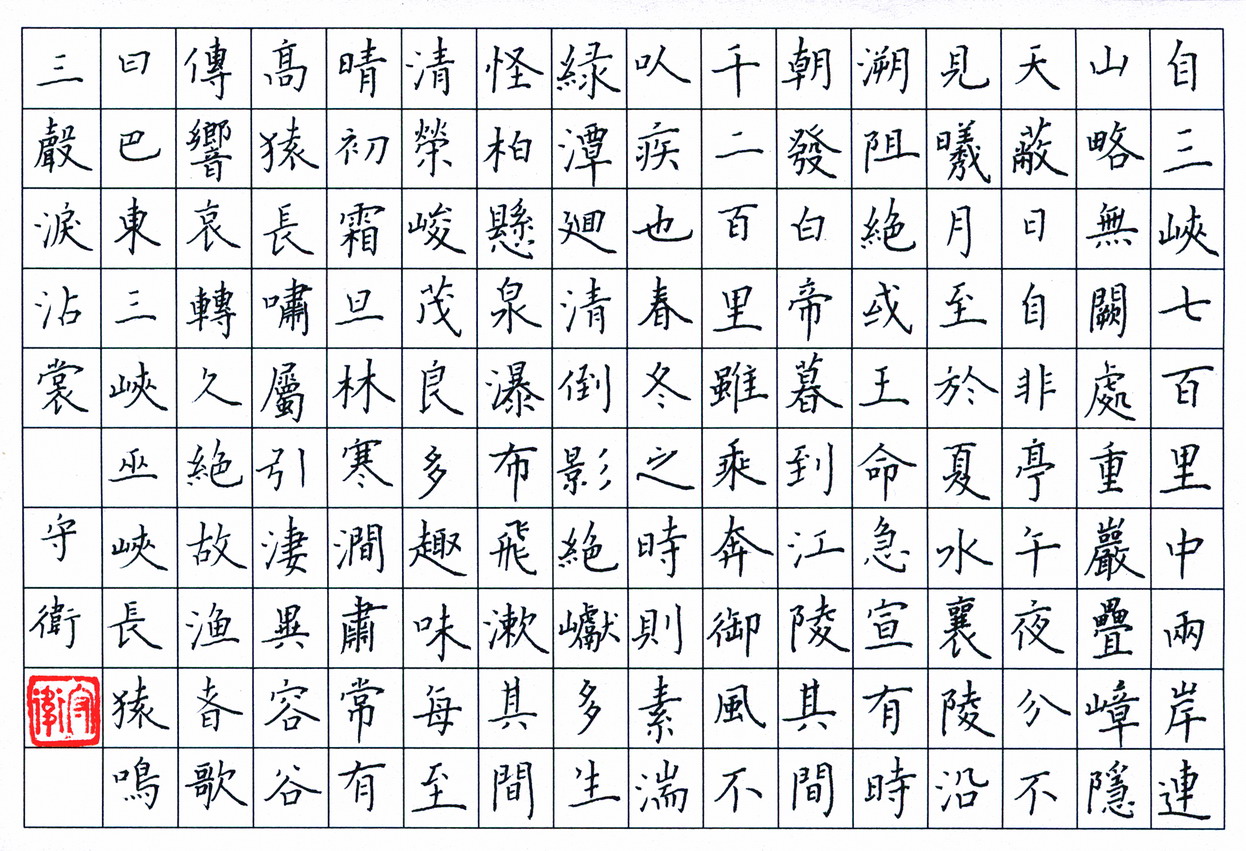 自三峽七百里中兩岸連
山略無闕處重巖疊嶂隱
天蔽日自非亭午夜分不
見曦月至於夏水襄陵沿
溯阻絕或王命急宣有時
朝發白帝暮到江陵其間
千二百里雖乘奔御風不
以疾也春冬之時則素湍
綠潭迴清倒影絕巘多生
怪柏懸泉瀑布飛漱其間
清榮峻茂良多趣味每至
晴初霜旦林寒澗肅常有
高猿長嘯屬引淒異容谷
傳響哀轉久絕故漁者歌
曰巴東三峽巫峽長猿鳴
三聲淚沾裳 守衛
守衛